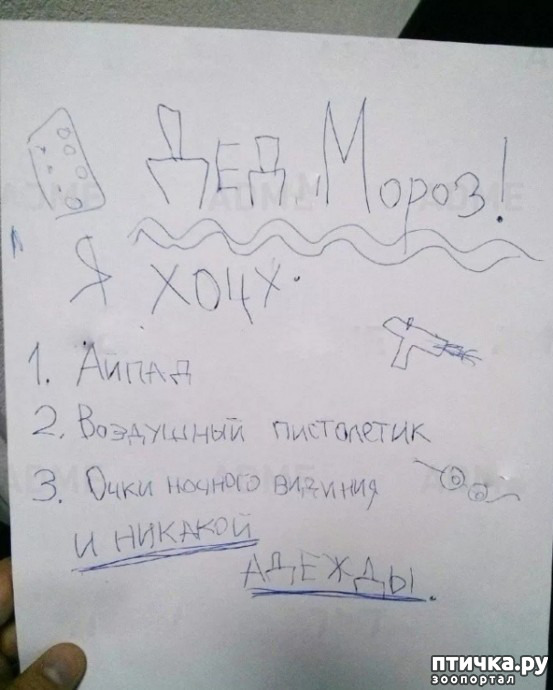 Дед Мороз!
Я хочу.
1. Айпад
2. Воздушный пистолетик
3. Очки ночного видиния
и никакой
адежды.
птичка.ру
зоопортал